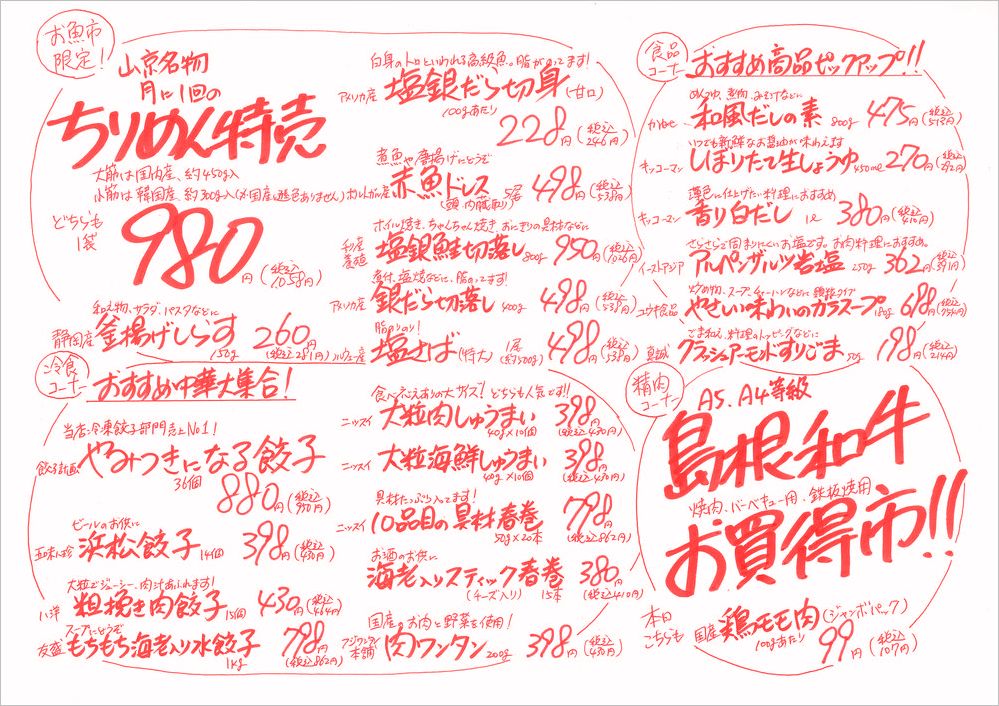 お魚市
限定!
山京名物
月に1回の
ちりめん特売
大筋は国内産、約450g入
小筋は韓国産、約300g入(外国産、遜色ありません)
どちらも
1袋
980円(税込1,058円)
和え物、サラダ、パスタなどに
静岡産 釜揚げしらす 150g 260円(税込281円)
白身のトロといわれる高級魚。脂がのってます!
アメリカ産 塩銀だら切身(甘口)
100gあたり
228円(税込246円)
煮魚や唐揚げにどうぞ
赤魚ドレス 498円(税込538円)
(頭、内臓取り)
ホイル焼き、ちゃんちゃん焼き、おにぎりの具材などに
塩銀鮭切落し 800g 950円(税込1,026円)
煮付、塩焼などに、脂のってます!
アメリカ産 銀だら切落し 400g 498円(税込538円)
脂のり◎!
ノルウェー産 塩さば(特大) 1尾(約500g) 498円(税込538円)
食品
コーナー
おすすめ商品ピックアップ!!
めんつゆ、煮物、みそ汁などに
和風だしの素 800g 475円(税込513円)
いつでも新鮮なお醤油が味わえます
キッコーマン しぼりたて生しょうゆ 450ml 270円(税込292円)
薄色に仕上げたい料理におすすめ
キッコーマン 香り白だし 1L 380円(税込410円)
さらさらで固まりにくいお塩です。お肉料理におすすめ。
イーストアジア アルペンザルツ岩塩 250g 362円(税込391円)
炒め物、スープ、チャーハンなどに 顆粒タイプ
ユウキ食品 やさしい味わいのガラスープ 180g 688円(税込744円)
ごま和え、料理のトッピングなどに
真誠 クラッシュアーモンドすりごま 50g 198円(税込214円)
冷食
コーナー
おすすめ中華大集合!
当店冷凍餃子部門売上No1!
餃子計画 やみつきになる餃子
36個
880円(税込950円)
ビールのお供に
五味八珍 浜松餃子 14個 398円(税込430円)
大粒でジューシー、肉汁あふれます!
八洋 粗挽き肉餃子 15個 430円(税込464円)
スープにどうぞ
友盛 もちもち海老入り水餃子 1kg 798円(税込862円)
食べごたえありの大サイズ!どちらも人気です!!
ニッスイ 大粒肉しゅうまい 40g×10個 398円(税込430円)
ニッスイ 大粒海鮮しゅうまい 40g×10個 398円(税込430円)
具材たっぷり入ってます!
ニッスイ 10品目の具材春巻 50g×20本 798円(税込862円)
お酒のお供に
海老入りスティック春巻 380円(税込410円)
(チーズ入り) 15本
国産のお肉と野菜を使用!
フジワンタン本舗 肉ワンタン 200g 398円(税込430円)
精肉
コーナー
A5、A4等級
島根和牛
焼肉、バーベキュー用、鉄板焼用
お買得市!!
本日
こちらも
国産 鶏モモ肉(ジャンボパック)
100gあたり 99円(税込107円)